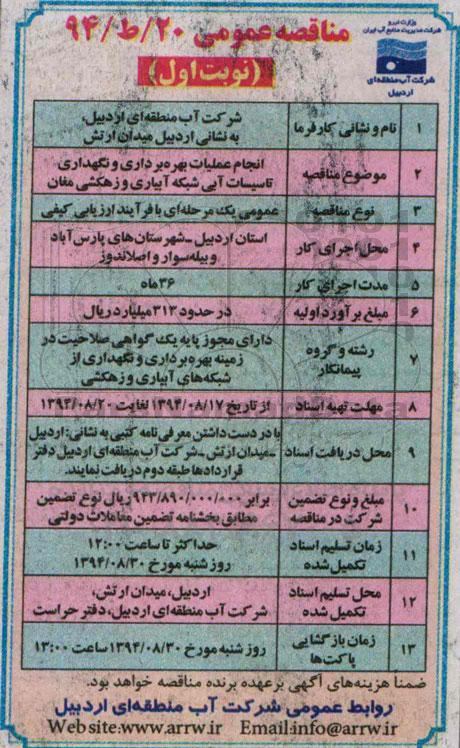 مناقصه عمومی ۲۰/ط/۹۴
(نوبت اول)
وزارت نیرو
شرکت مدیریت منابع آب ایران
شرکت آب منطقه‌ای
اردبیل
۱ نام و نشانی کارفرما شرکت آب منطقه‌ای اردبیل،
به نشانی اردبیل میدان ارتش
۲ موضوع مناقصه انجام عملیات بهره برداری و نگهداری
تاسیسات آبی شبکه آبیاری و زهکشی مغان
۳ نوع مناقصه عمومی یک مرحله‌ای با فرآیند ارزیابی کیفی
۴ محل اجرای کار استان اردبیل ـ شهرستان‌های پارس‌آباد
و بیله‌سوار و اصلاندوز
۵ مدت اجرای کار ۳۶ ماه
۶ مبلغ برآورد اولیه در حدود ۳۱۳ میلیارد ریال
۷ رشته و گروه
پیمانکار
دارای مجوز پایه یک گواهی صلاحیت در
زمینه بهره برداری و نگهداری از
شبکه‌های آبیاری و زهکشی
۸ مهلت تهیه اسناد از تاریخ ۱۳۹۴/۰۸/۱۷ لغایت ۱۳۹۴/۰۸/۲۰
۹ محل دریافت اسناد با در دست داشتن معرفی نامه کتبی به نشانی: اردبیل
ـ میدان ارتش ـ شرکت آب منطقه‌ای اردبیل دفتر
قراردادها طبقه دوم دریافت نمایند.
۱۰ مبلغ و نوع تضمین
شرکت در مناقصه
برابر ۹۴۳/۸۹۰/۰۰۰/۰۰۰ ریال نوع تضمین
مطابق بخشنامه تضمین معاملات دولتی
۱۱ زمان تسلیم اسناد
تکمیل شده
حداکثر تا ساعت ۱۲:۰۰
روز شنبه مورخ ۱۳۹۴/۰۸/۳۰
۱۲ محل تسلیم اسناد
تکمیل شده
اردبیل، میدان ارتش،
شرکت آب منطقه‌ای اردبیل، دفتر حراست
۱۳ زمان بازگشایی
پاکت‌ها
روز شنبه مورخ ۱۳۹۴/۰۸/۳۰ ساعت ۱۳:۰۰
ضمناً هزینه‌های آگهی بر عهده برنده مناقصه خواهد بود.
روابط عمومی شرکت آب منطقه‌ای اردبیل
Web site:www.arrw.ir Email:info@arrw.ir